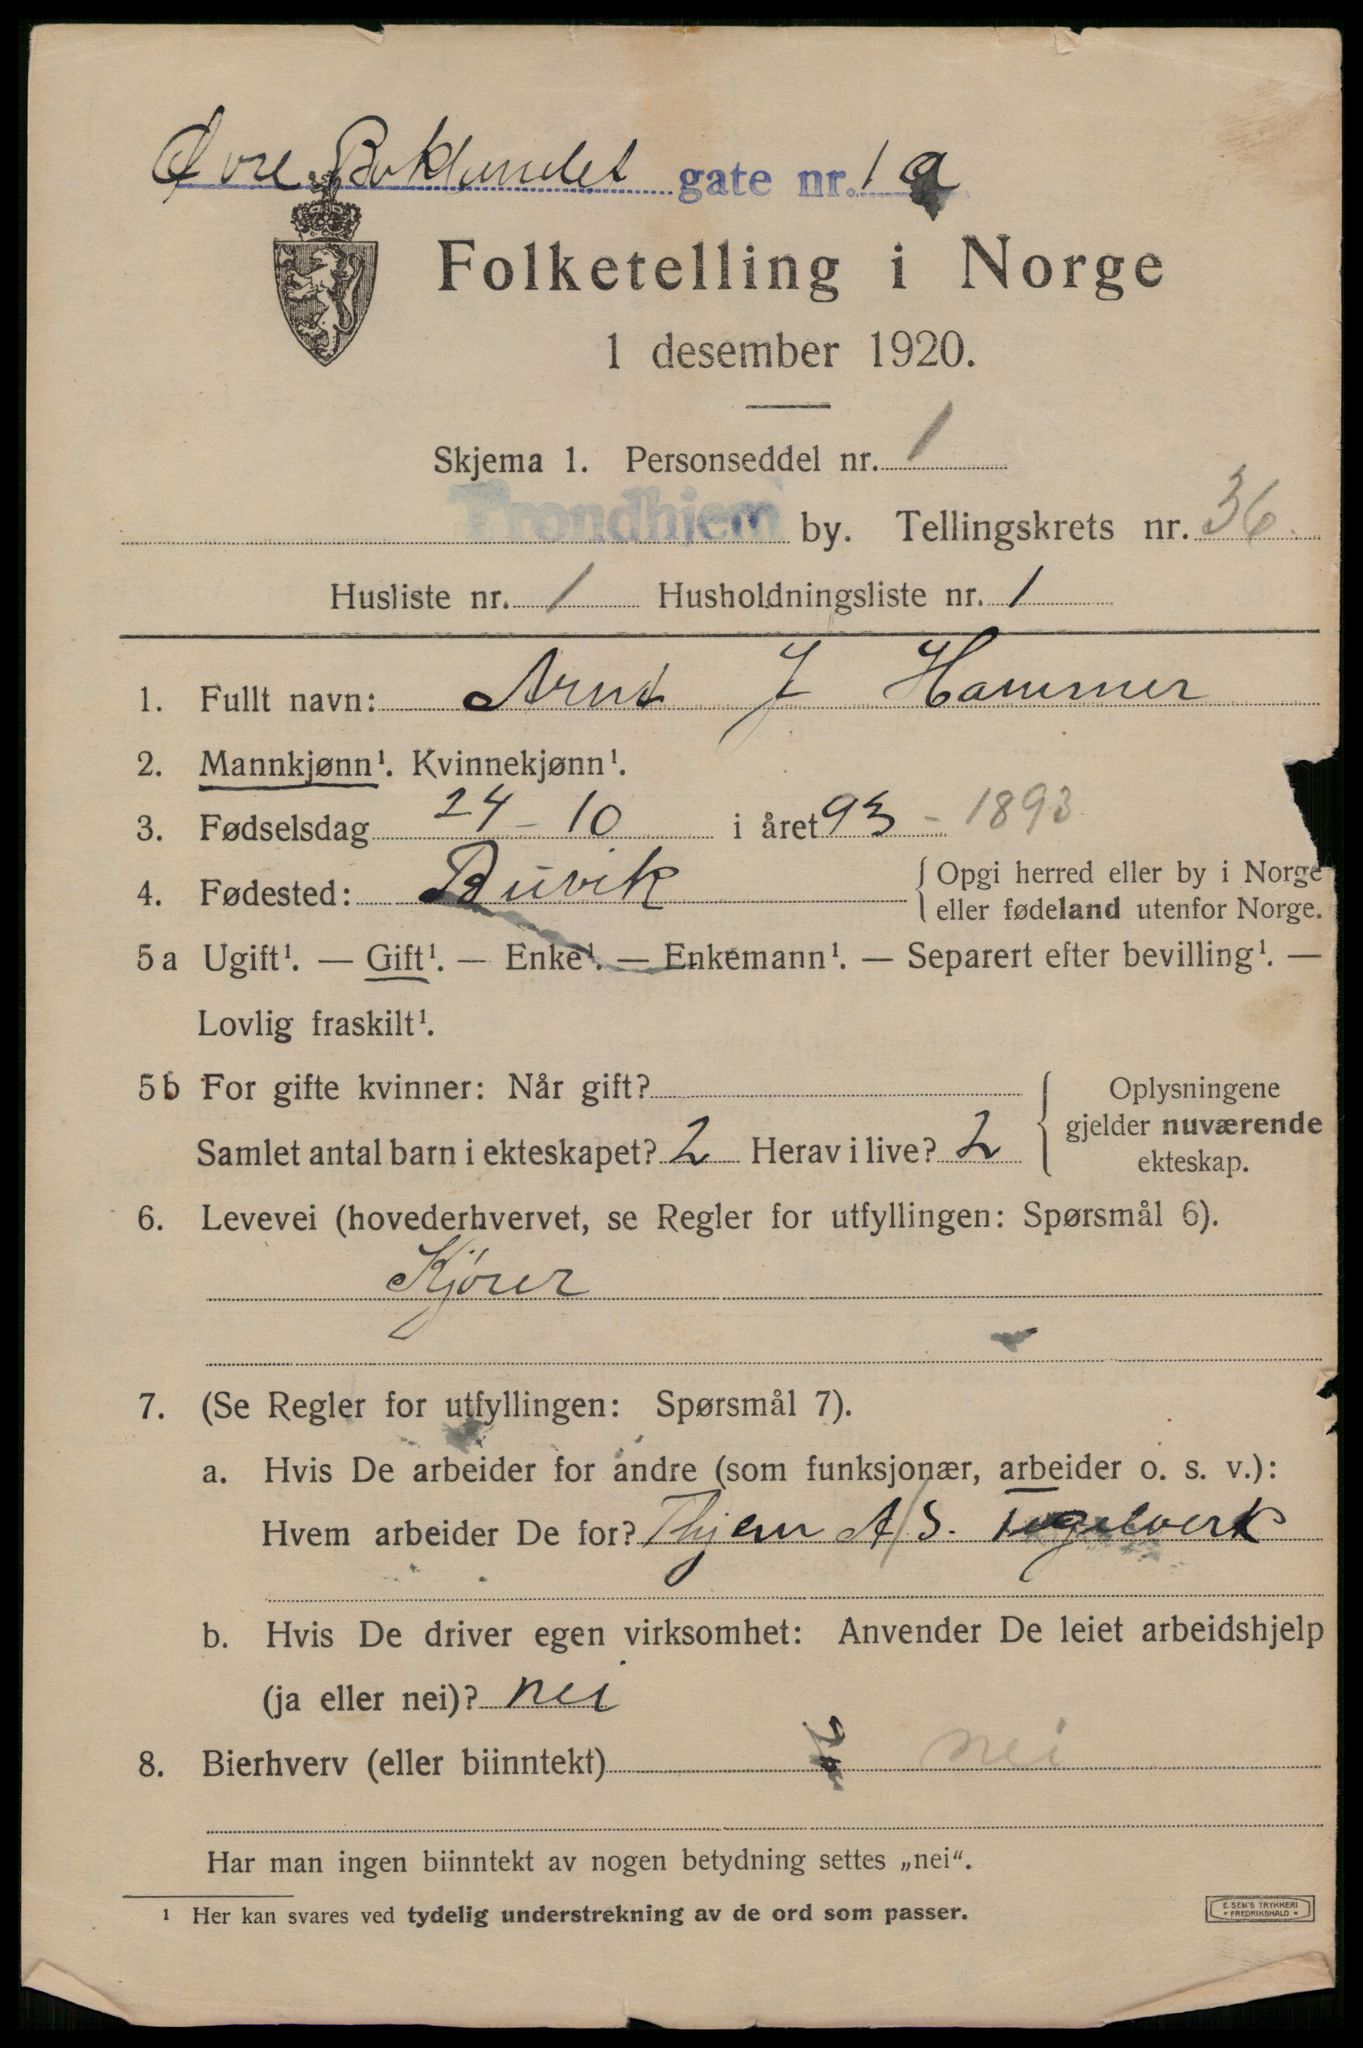 Øvre Baklandet gate nr. 1 a
Folketelling i Norge
1 desember 1920.
Skjema 1. Personseddel nr. 1
Trondhjem by. Tellingskrets nr. 36.
Husliste nr. 1 Husholdningsliste nr. 1
1. Fullt navn: Arnt J Hammer
2. Mannkjønn¹. Kvinnekjønn¹.
3. Fødselsdag 24 - 10 i året 93 - 1893
4. Fødested: Buvik {Opgi herred eller by i Norge
eller fødeland utenfor Norge.
5 a Ugift¹. — Gift¹. — Enke¹. — Enkemann¹. — Separert efter bevilling¹. —
Lovlig fraskilt¹.
5 b For gifte kvinner: Når gift?
Samlet antal barn i ekteskapet? 2 Herav i live? 2
{Oplysningene
gjelder nuværende
ekteskap.
6. Levevei (hovederhvervet, se Regler for utfyllingen: Spørsmål 6).
Kjører
7. (Se Regler for utfyllingen: Spørsmål 7).
a. Hvis De arbeider for andre (som funksjonær, arbeider o. s. v.):
Hvem arbeider De for? Thjem A/S. Teglverk
b. Hvis De driver egen virksomhet: Anvender De leiet arbeidshjelp
(ja eller nei)? nei
8. Bierhverv (eller biinntekt) nei
Har man ingen biinntekt av nogen betydning settes „nei“.
¹ Her kan svares ved tydelig understrekning av de ord som passer.
E. SEM'S TRYKKERI
* FREDRIKSHALD *